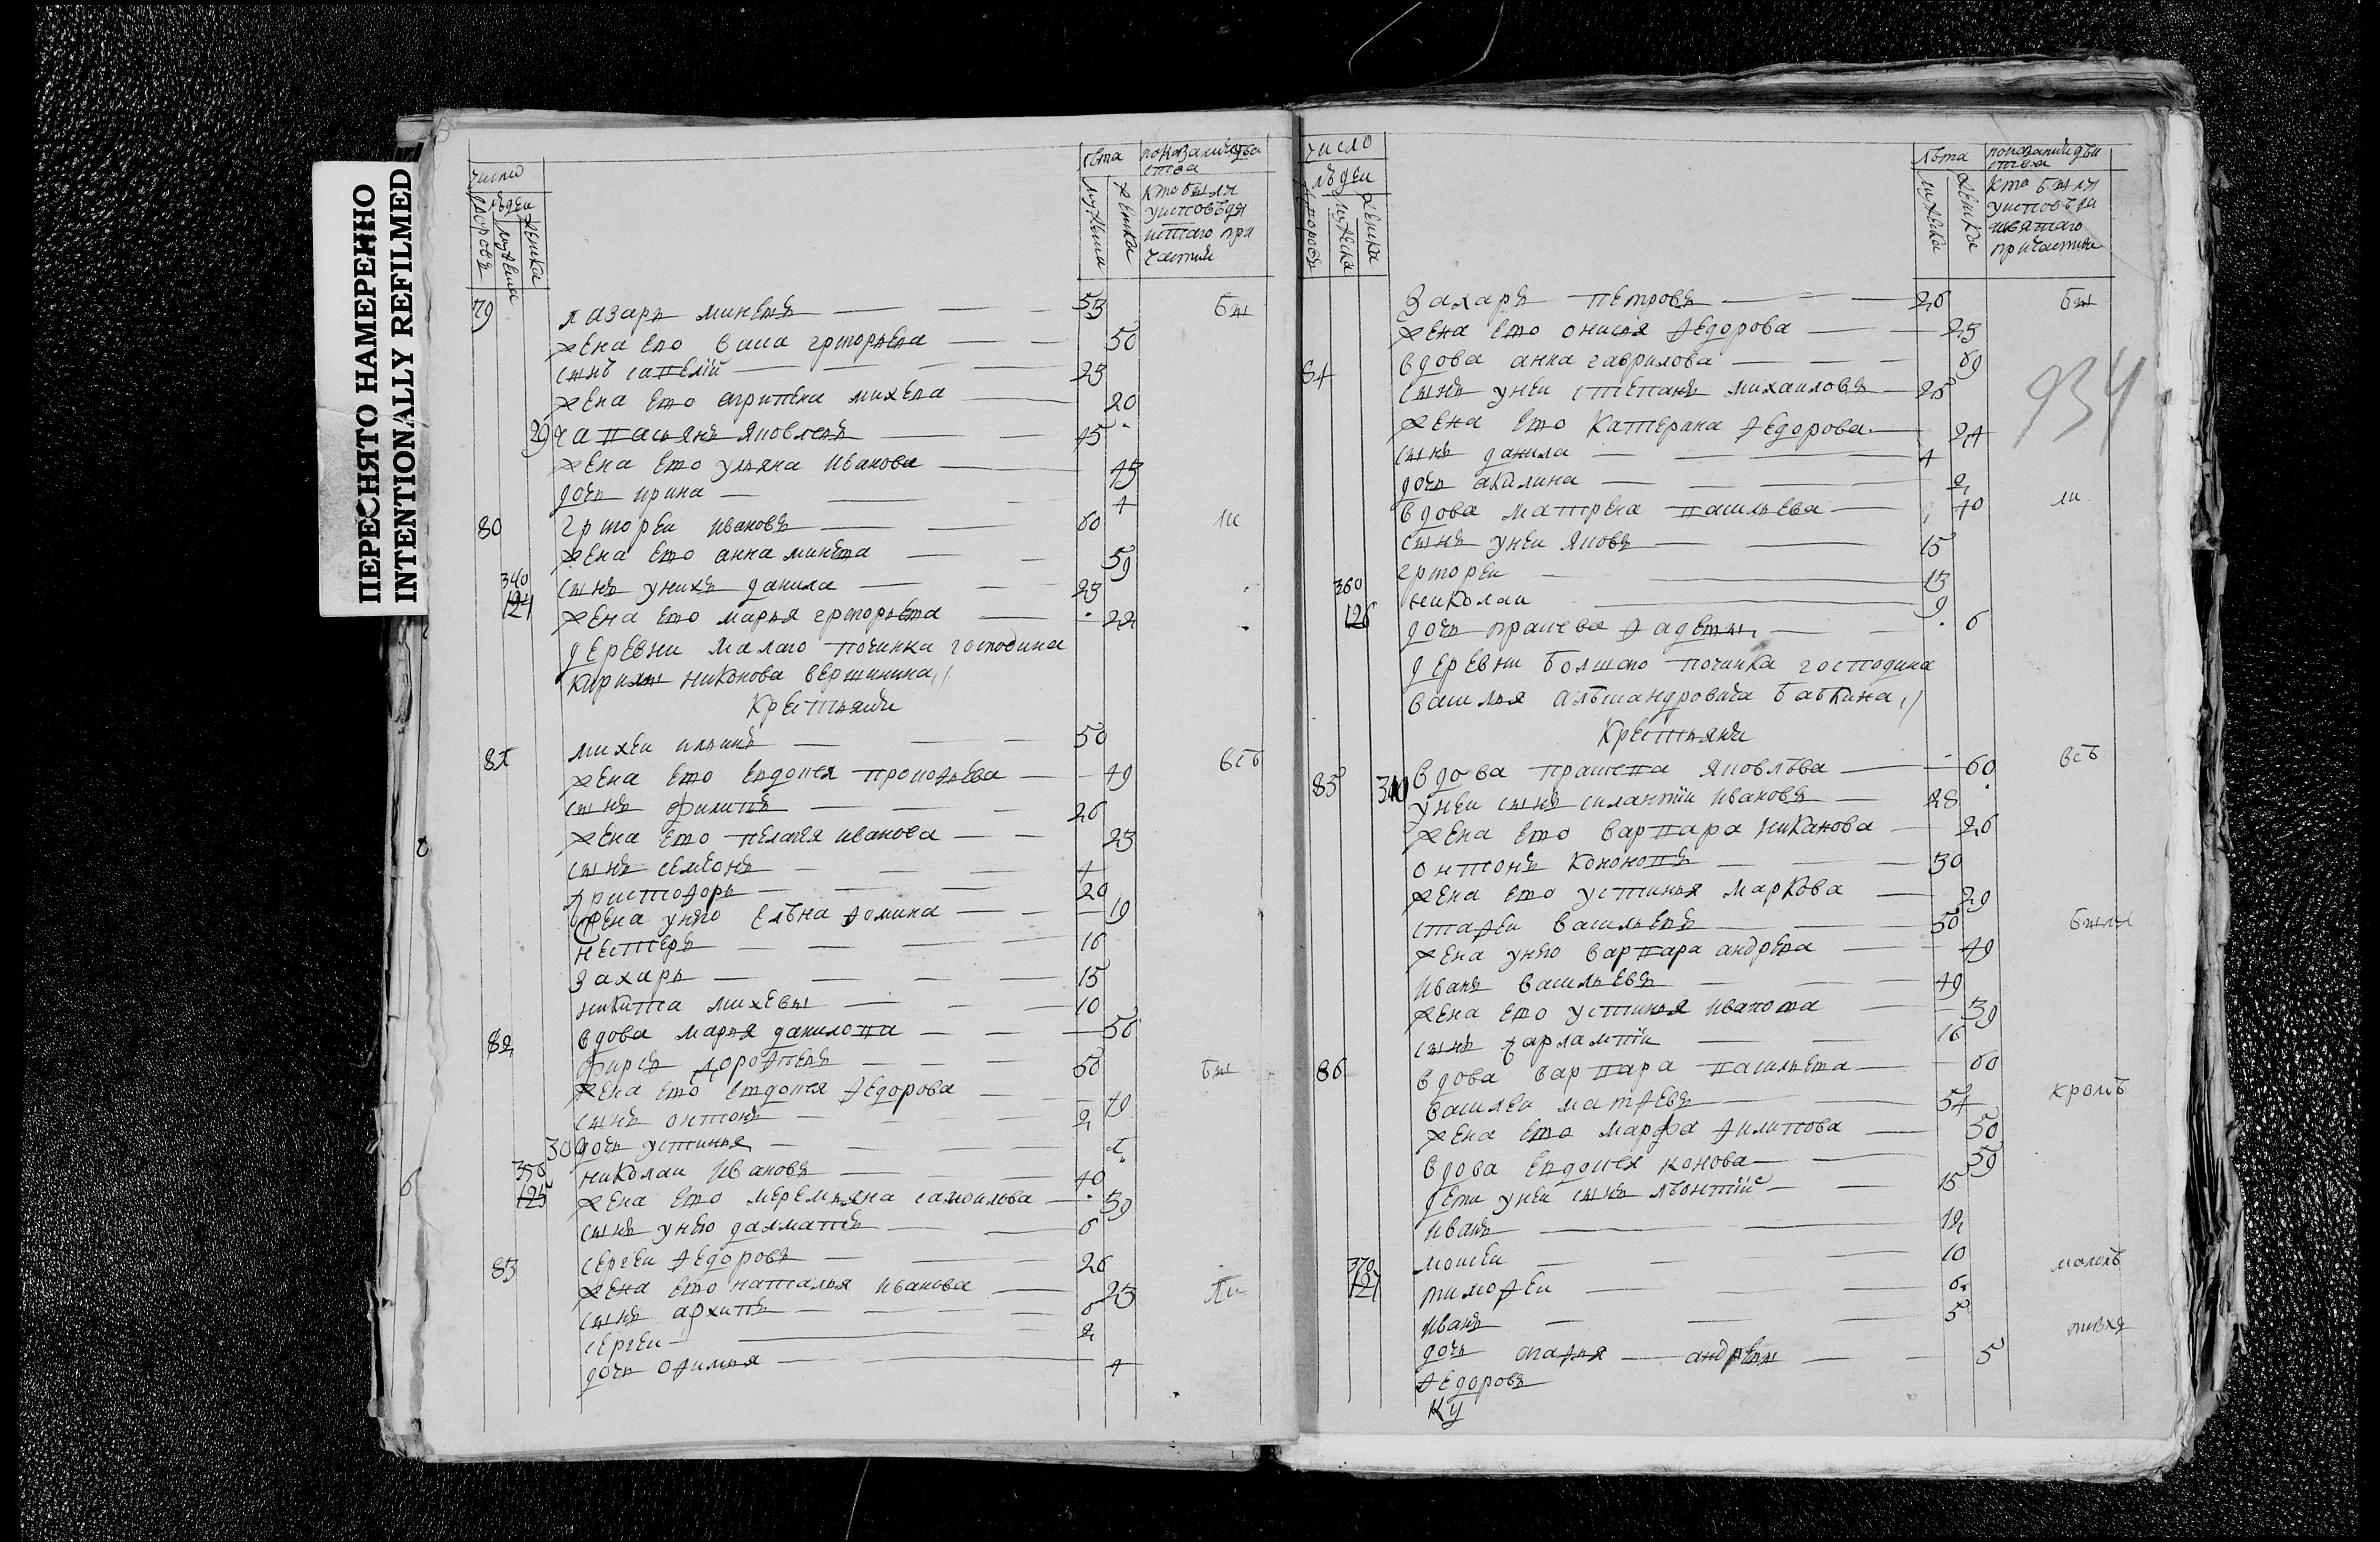 ПЕРЕСНЯТО НАМЕРЕННО
INTENTIONALLY REFILMED
число
людей
дворовъ
мужеска
женска
лѣта
мужеска
женска
кто были
79 лазарь 53 бы
жена ево васа григорьева 50
сынъ савелiй 23
жена ево агрипена михева 20
29 яковлевъ 45
жена ево ульяна иванова 43
дочь ирина 4
80 григореи ивановъ 60 ли
жена ево анна 59
340 сынъ унихъ данила 23
124 жена ево марья григорьева 22
деревни малаго починка господина
кирилы никонова вершинина
крестьяня
81 михеи ильинъ 50 всѣ
жена ево евдокея прокофьева 49
сынъ филипъ 26
жена ево пелагея иванова 23
сынъ семіонъ 4
христофоръ 20
жена унѣго елѣна фомина 19
нестеръ 16
захаръ 15
никита михевы 10
82 вдова марья данилова 56
фирсъ дорофѣевъ 50 бы
жена ево евдокея федорова 49
сынъ онтонъ 2
30 дочь устинья
350 николаи ивановъ 40
125 жена ево меремьяна самоилова 39
сынъ унѣго далматъ 6
83 сергеи федоровъ 26
жена ево наталья иванова 23 ли
сынъ архипъ 6
сергеи 2
дочь офимья 4
число
людеи
дворовъ
мужеска
женска
лѣта
мужеска
женска
кто были
у исповѣди
исвятаго
причастия
захаръ петровъ 26 бы
жена ево онисья федорова 23
вдова анна гаврилова 69
84 сынъ унеи степанъ михаиловъ 26
жена ево катерина федорова 24
сынъ данила 4
дочь акилина 2
вдова матрена васильева 40 ли
сынъ унеи яковъ 15
григореи 13
360 николаи 9
126 дочь 6
деревни болшаго починка господина
василья алѣксандровича бабкина
крестьяня
85 310 вдова прасковя яковлѣва 60 всѣ
унеи сынъ силантiи ивановъ 28
жена ево варвара никанова 26
онтонъ кононовъ 30
жена ево устинья маркова 29
стафеи васильевъ 50 были
жена унѣго варвара андрѣева 49
иванъ васильевъ 49
жена ево устинья иванова 39
сынъ харлампiи 16
86 вдова варвара васильева 60
василеи матфевъ 54 кромѣ
жена ево марфа филипова 50
вдова евдокея конова 59
дети унеи сынъ лѣонтiй 15
иванъ 12
370 моисеи 10 малолѣ
127 тимофеи 6
иванъ 5 тнихъ
дочь агафья андрѣевы 5
федоровъ
ку
934